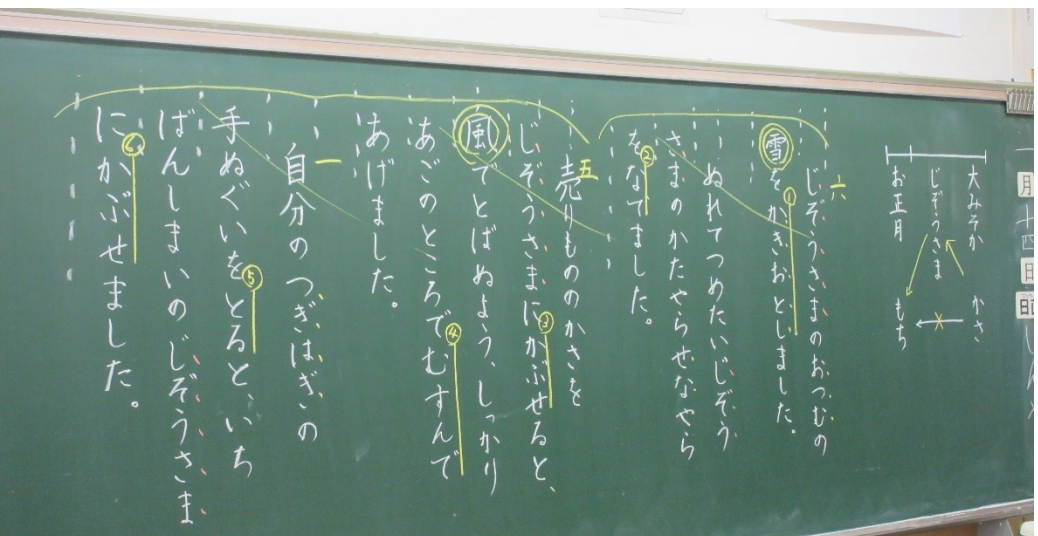 月
十四
日
大みそか　かさ
じぞうさま
お正月　もち
六
じぞうさまのおつむの
雪をかきおとしました。
①
ぬれてつめたいじぞう
さまのかたやらせなやら
をなでました。
②
五
売りもののかさを
じぞうさまにかぶせると、
③
風でとばぬよう、しっかり
あごのところでむすんで
④
あげました。
一
自分のつぎはぎの
手ぬぐいをとると、いち
⑤
ばんしまいのじぞうさま
にかぶせました。
⑥